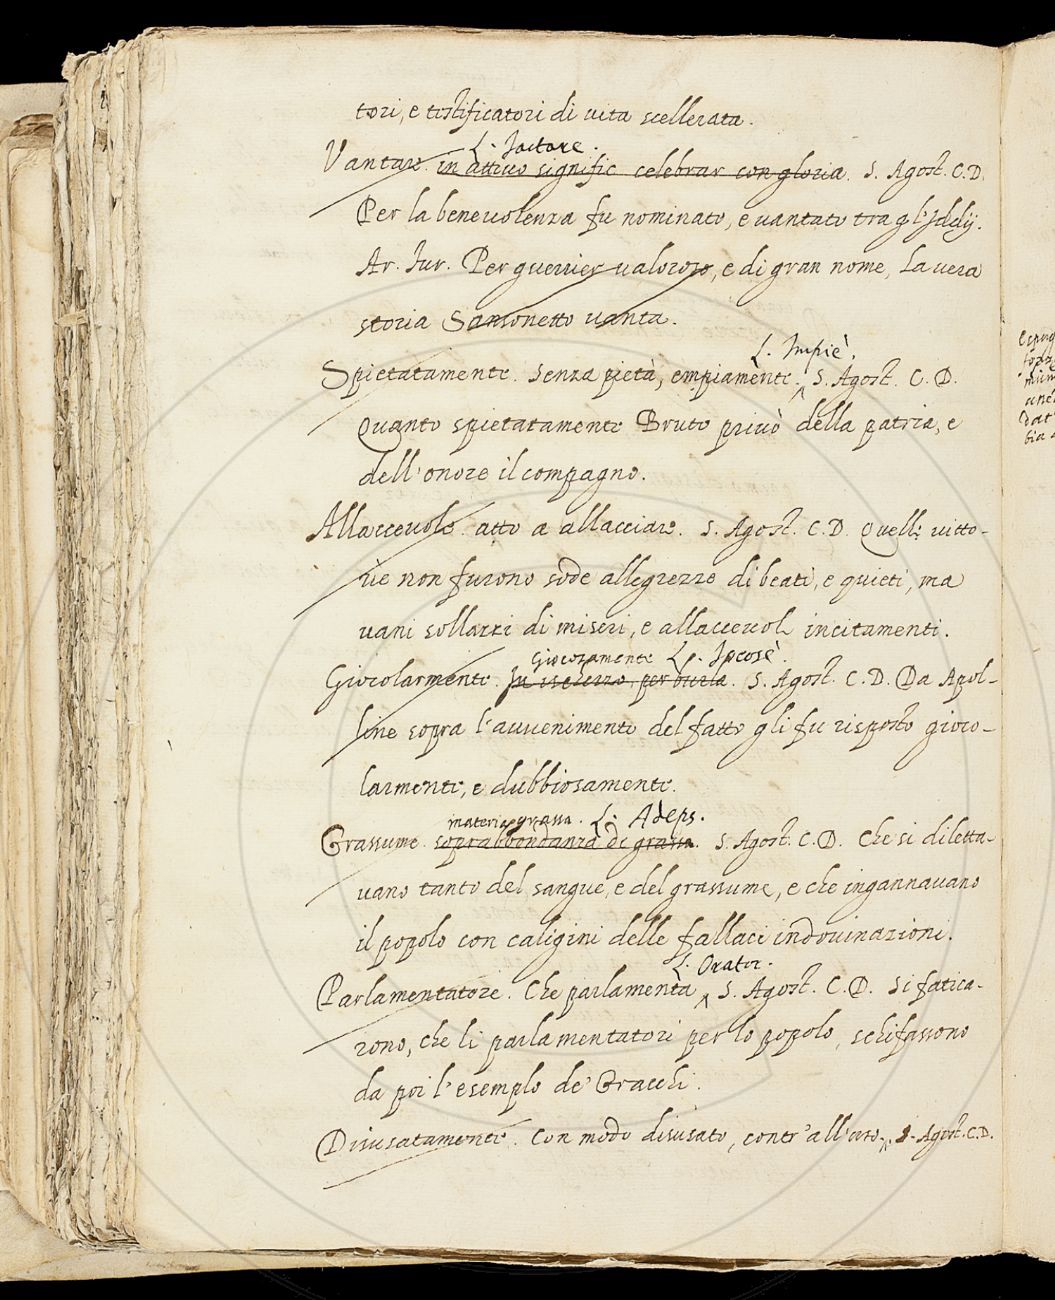 tori, e testificatori di vita scellerata.
L. Jactare.
Vantare. in attivo signific. celebrar con gloria. S. Agost. C.D.
Per la benevolenza fu nominato, e vantato tra gl'Iddij.
Ar. Fur. Per guerrier valoroso, e di gran nome, La vera
storia Sansonetto vanta.
L. Impiè.
Spietatamente. Senza pietà, empiamente. S. Agost. C. D.
Quanto spietatamente Bruto privò della patria, e
dell'onore il compagno.
Allaccevole. atto a allacciare. S. Agost. C. D. Quelle vitto-
rie non furono sode allegrezze di beati, e quieti, ma
vani sollazzi di miseri, e allaccevoli incitamenti.
Giocosamente L. Jocosè.
Giocolarmente. In ischerzo, per burla. S. Agost. C. D. Da Apol-
line sopra l'avvenimento del fatto gli fu risposto gioco-
larmente, e dubbiosamente.
materia grassa. L. Adeps.
Grassume. soprabbondanza di grasso. S. Agost. C. D. Che si diletta-
vano tanto del sangue, e del grassume, e che ingannavano
il popolo con caligini delle fallaci indovinazioni.
L. Orator.
Parlamentatore. Che parlamenta S. Agost. C. D. Si fatica-
rono, che li parlamentatori per lo popolo, schifassono
da poi l'esemplo de' Gracchi.
Disusatamente. Con modo disusato, contr'all'uso. S. Agost. C.D.